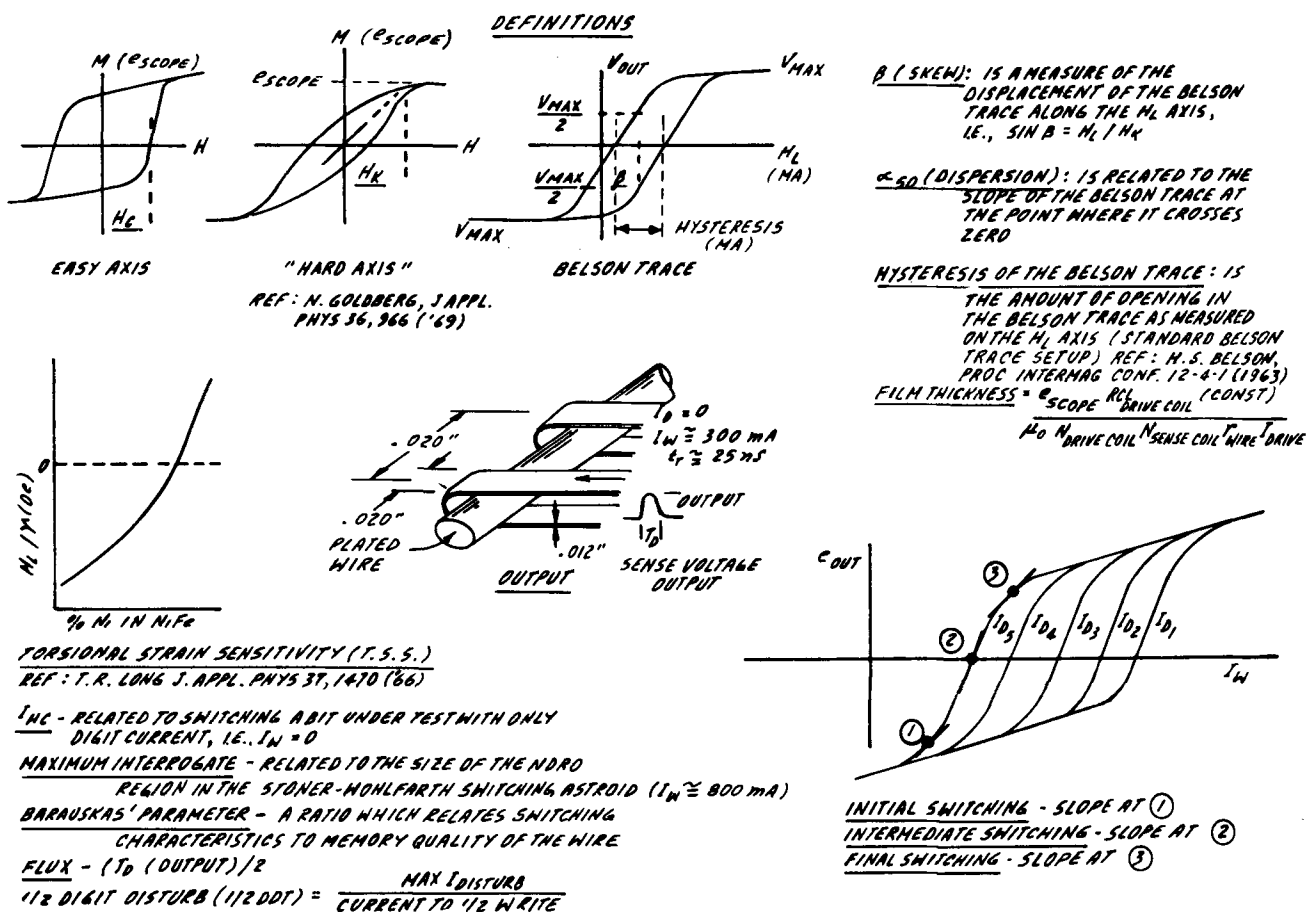 DEFINITIONS
M (eSCOPE)
H
HC
EASY AXIS
M (eSCOPE)
eSCOPE
H
HK
"HARD AXIS"
REF: N. GOLDBERG, J APPL.
PHYS 36, 966 ('69)
VOUT
VMAX
VMAX
2
VMAX
2
β
HL
(MA)
VMAX
HYSTERESIS
(MA)
BELSON TRACE
β (SKEW): IS A MEASURE OF THE
DISPLACEMENT OF THE BELSON
TRACE ALONG THE HL AXIS,
I.E., SIN β = HL / HK
∝50 (DISPERSION): IS RELATED TO THE
SLOPE OF THE BELSON TRACE AT
THE POINT WHERE IT CROSSES
ZERO
HYSTERESIS OF THE BELSON TRACE: IS
THE AMOUNT OF OPENING IN
THE BELSON TRACE AS MEASURED
ON THE HL AXIS (STANDARD BELSON
TRACE SETUP) REF: H.S. BELSON,
PROC INTERMAG CONF. 12-4-1 (1963)
FILM THICKNESS = eSCOPE RCL DRIVE COIL (CONST)
μ0 NDRIVE COIL NSENSE COIL rWIRE IDRIVE
0
% NI IN NIFe
TORSIONAL STRAIN SENSITIVITY (T.S.S.)
REF: T.R. LONG J. APPL. PHYS 37, 1470 ('66)
.020"
.020"
ID = 0
IW ≅ 300 mA
tr ≅ 25 ns
OUTPUT
TD
.012"
PLATED
WIRE
OUTPUT
SENSE VOLTAGE
OUTPUT
IHC - RELATED TO SWITCHING A BIT UNDER TEST WITH ONLY
DIGIT CURRENT, I.E. IW = 0
MAXIMUM INTERROGATE - RELATED TO THE SIZE OF THE NDRO
REGION IN THE STONER-WOHLFARTH SWITCHING ASTROID (IW ≅ 800 mA)
BARAUSKAS' PARAMETER - A RATIO WHICH RELATES SWITCHING
CHARACTERISTICS TO MEMORY QUALITY OF THE WIRE
FLUX - (TD (OUTPUT)/2
1/2 DIGIT DISTURB (1/2 DDT) = MAX IDISTURB
CURRENT TO 1/2 WRITE
eOUT
③
②
①
ID5
ID4
ID3
ID2
ID1
IW
INITIAL SWITCHING - SLOPE AT ①
INTERMEDIATE SWITCHING - SLOPE AT ②
FINAL SWITCHING - SLOPE AT ③